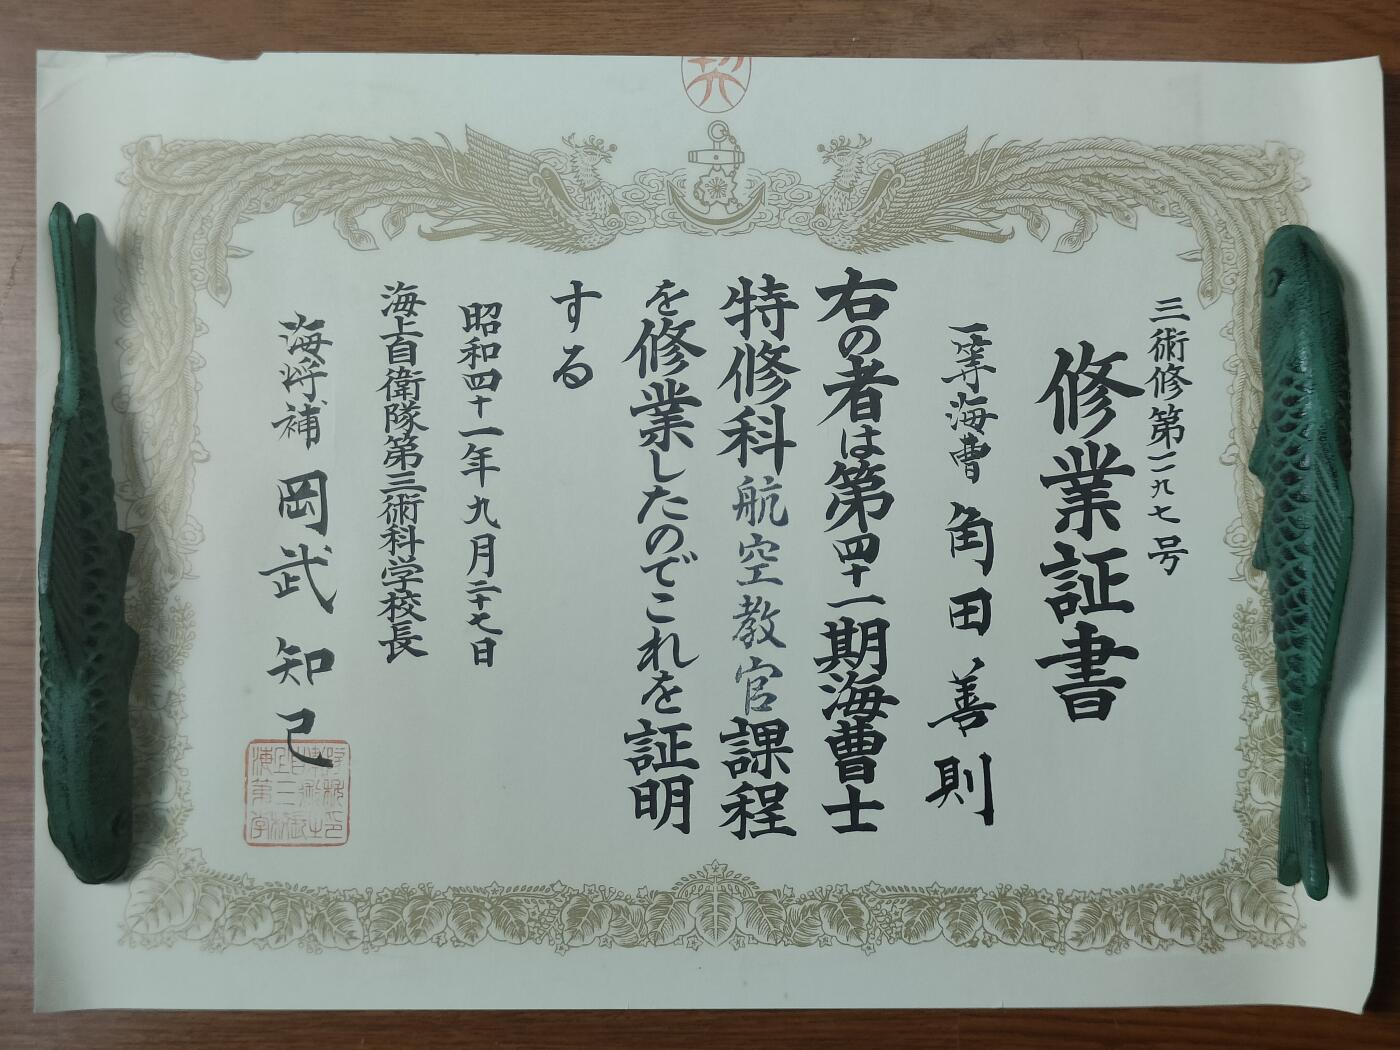 三術修第一二九七号
修業証書
一等海曹 角田善則
右の者は第四十一期海曹士
特修科航空教官課程
を修業したのでこれを証明
する
昭和四十一年九月二十七日
海上自衛隊第三術科学校長
海将補 岡武知己